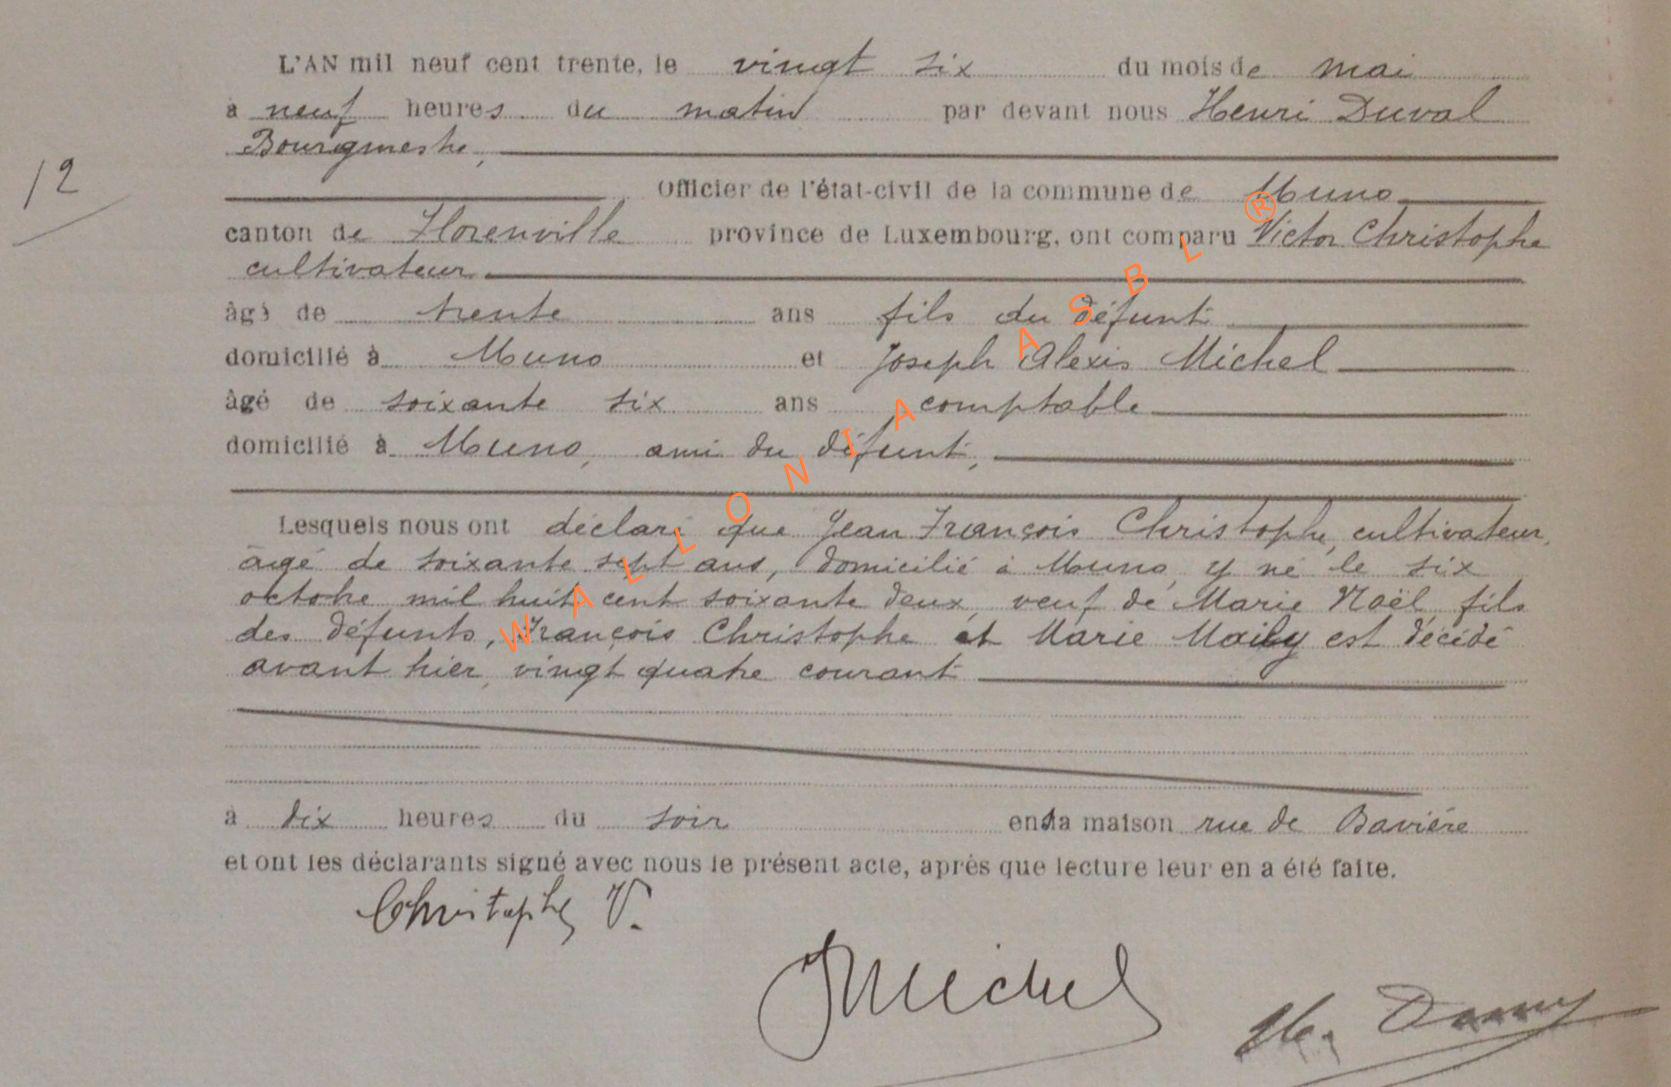 L'AN mil neuf cent trente, le vingt six du mois de mai
à neuf heures du matin par devant nous Henri Duval
Bourgmestre,
12
Officier de l'état-civil de la commune de Muno
canton de Florenville province de Luxembourg, ont comparu Victor Christophe
cultivateur
âgé de trente ans fils du défunt
domicilié à Muno et Joseph Alexis Michel
âgé de soixante six ans comptable
domicilié à Muno, ami du défunt,
Lesquels nous ont déclaré que Jean François Christophe, cultivateur,
âgé de soixante sept ans, domicilié à Muno, y né le six
octobre mil huit cent soixante deux, veuf de Marie Noël, fils
des défunts, François Christophe et Marie Maily est décédé
avant hier, vingt quatre courant
à dix heures du soir en sa maison rue de Bavière
et ont les déclarants signé avec nous le présent acte, après que lecture leur en a été faite.
Christophe V.
JMichel
WALLONIA ASBL ®